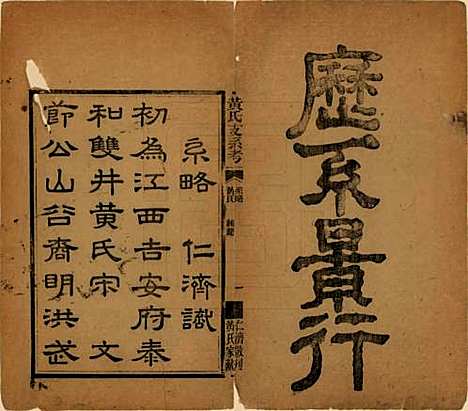 歷系景行
黃氏支系考
系略
仁濟敬刊
黃氏家獻
系略 仁濟識
初為江西吉安府泰
和雙井黃氏宋 文
節公山谷裔明洪武